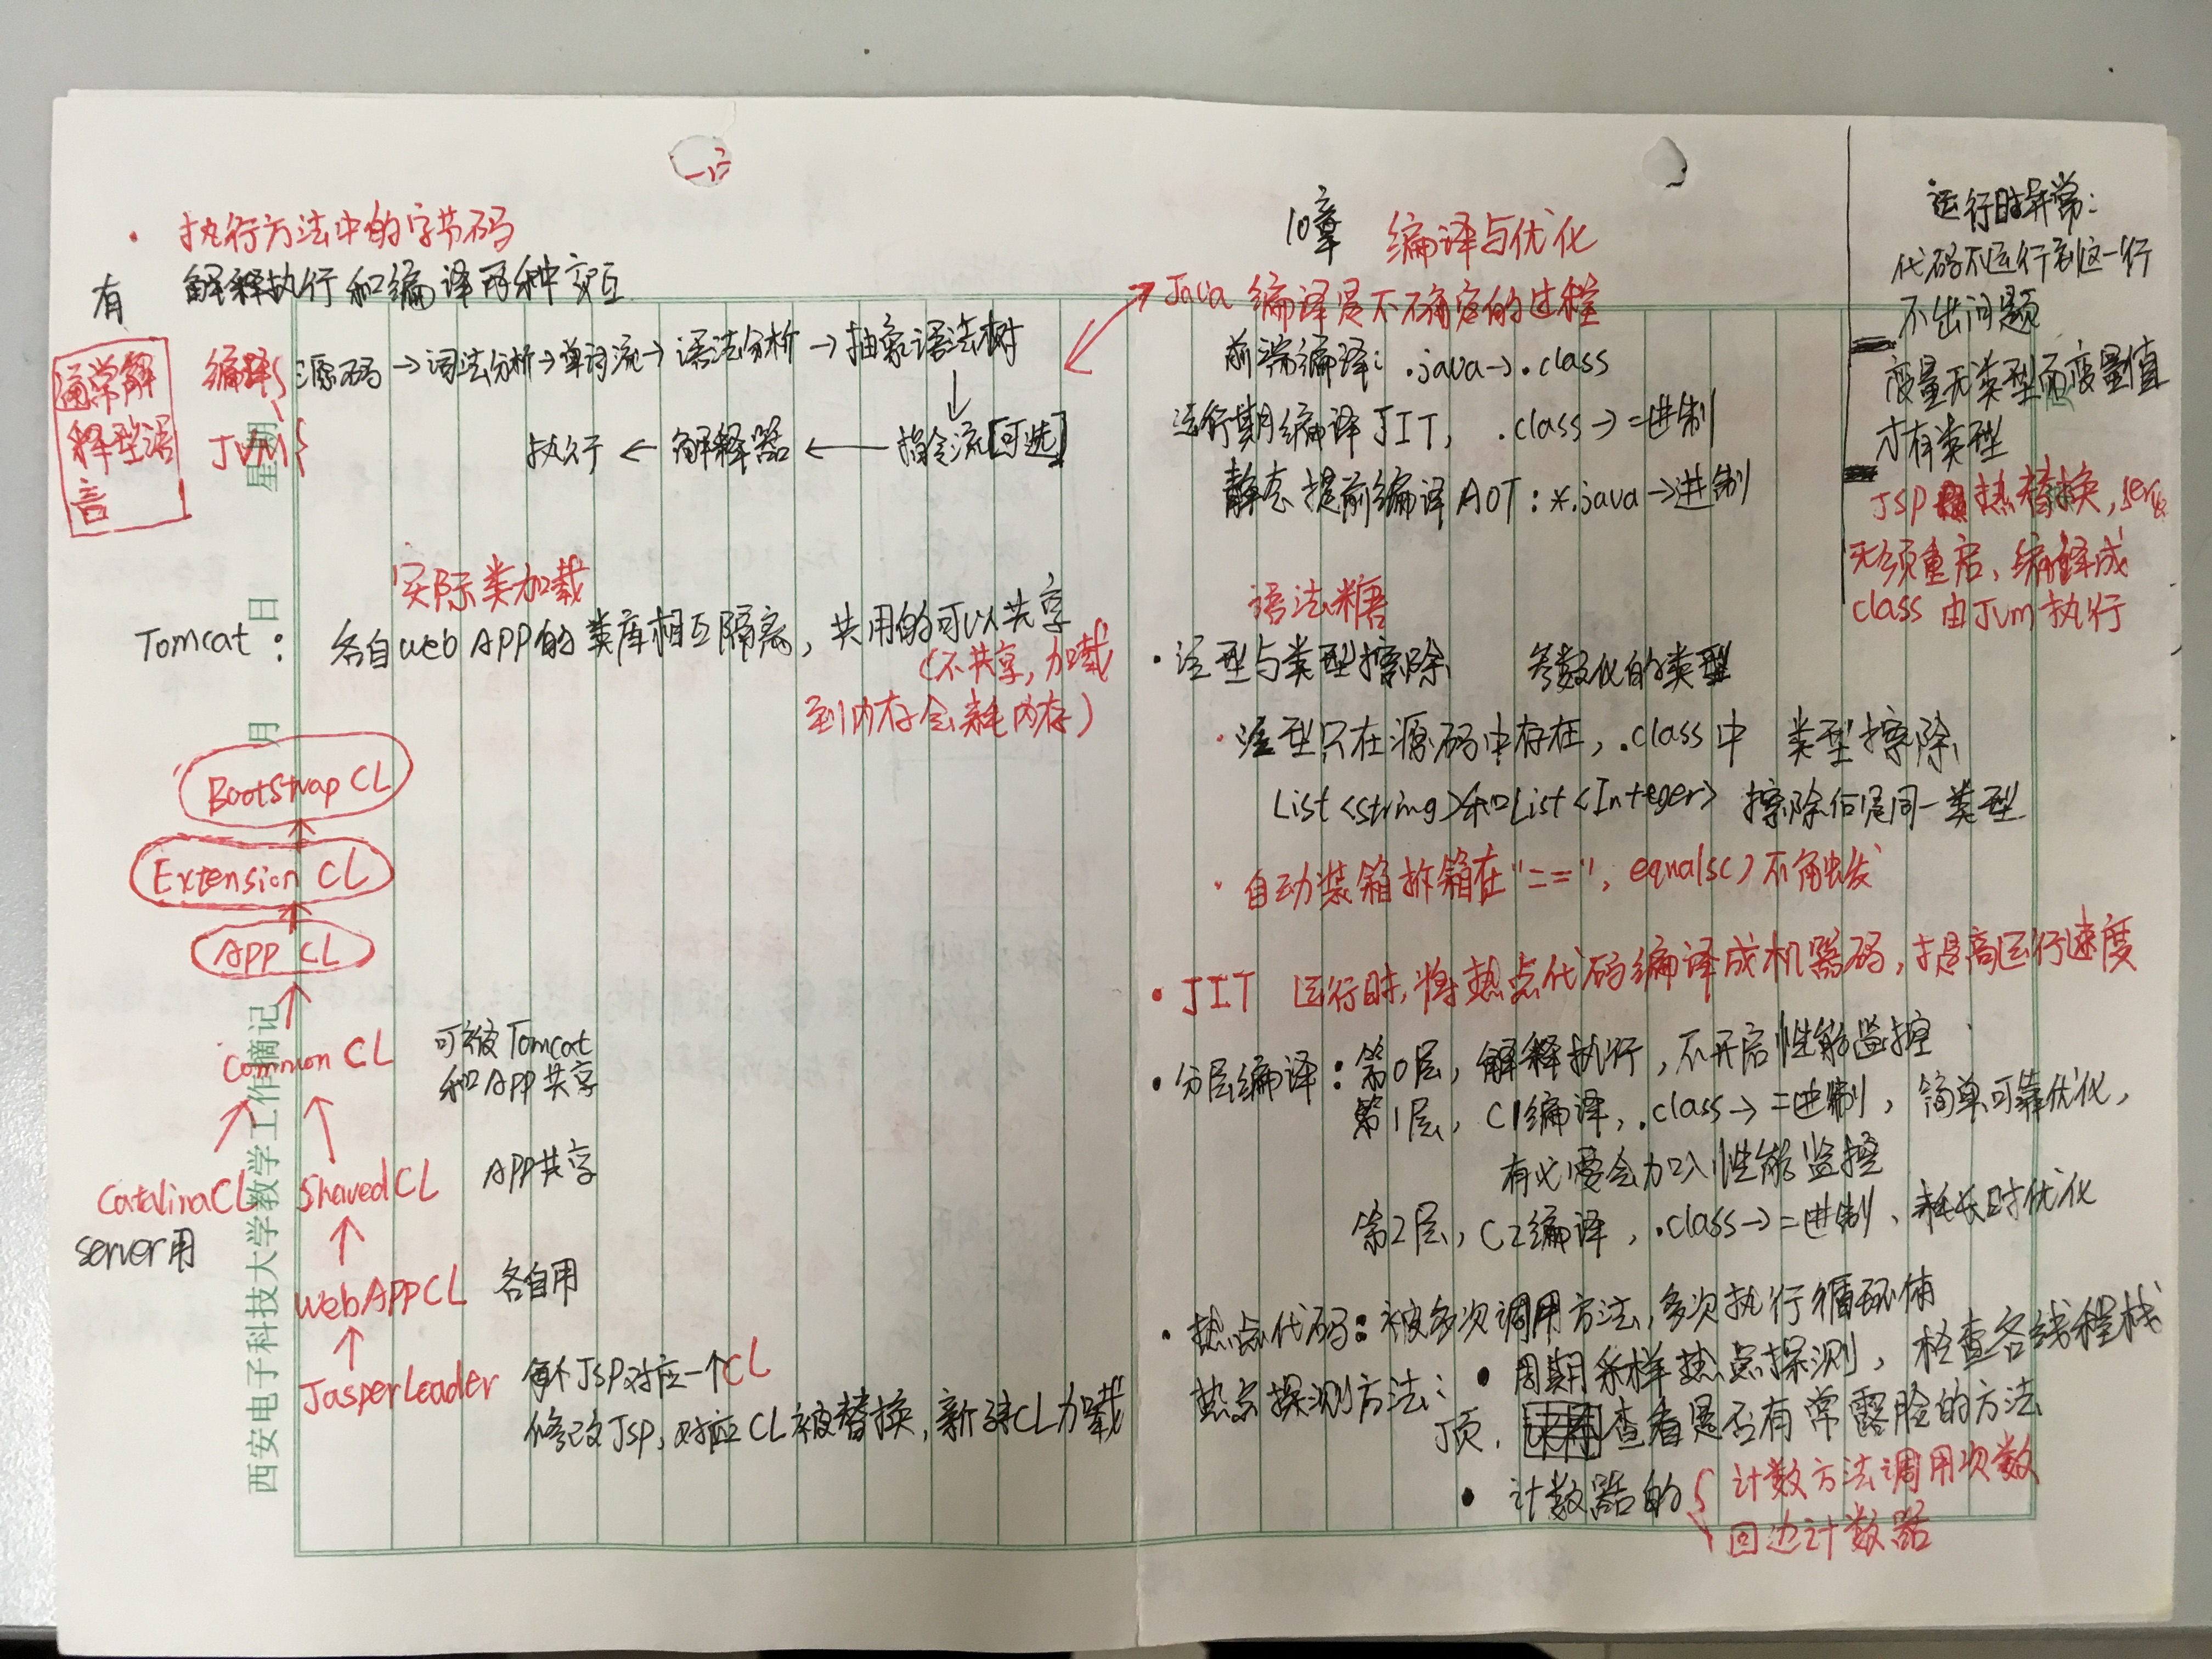 · 执行方法中的字节码
有 解释执行和编译两种交互
通常解
释型语
言
编译{ 源码→词法分析→单词流→语法分析→抽象语法树
↓
JVM{ 执行 ← 解释器 ← 指令流[可选]
实际类加载
Tomcat: 各自web APP的类库相互隔离，共用的可以共享
(不共享,加载
到内存会耗内存)
Bootstrap CL
Extension CL
APP CL
Common CL 可被Tomcat
和APP共享
CatalinaCL SharedCL APP共享
server用
WebAPPCL 各自用
JasperLoader 每个JSP对应一个CL
修改JSP，对应CL被替换，新建CL加载
星期
日
月
西安电子科技大学教学工作摘记
10章 编译与优化
Java 编译是不确定的过程
前端编译: .java→.class
运行期编译JIT, .class→二进制
静态提前编译AOT: *.java→进制
语法糖
· 泛型与类型擦除 参数化的类型
· 泛型只在源码中存在，.class中 类型擦除
List<string>和List<Integer> 擦除后是同一类型
· 自动装箱拆箱在"==", equals()不触发
· JIT 运行时,将热点代码编译成机器码,提高运行速度
· 分层编译: 第0层，解释执行，不开启性能监控
第1层，C1编译，.class→二进制，简单可靠优化，
有必要会加入性能监控
第2层，C2编译，.class→二进制、耗长时优化
· 热点代码: 被多次调用方法，多次执行循环体
热点探测方法: · 周期采样热点探测，检查各线程栈
顶，查看是否有常露脸的方法
· 计数器的{ 计数方法调用次数
回边计数器
运行时异常:
代码不运行到这一行
不出问题
变量无类型而变量值
才有类型
JSP 热替换,
无须重启、编译成
class 由Jvm执行